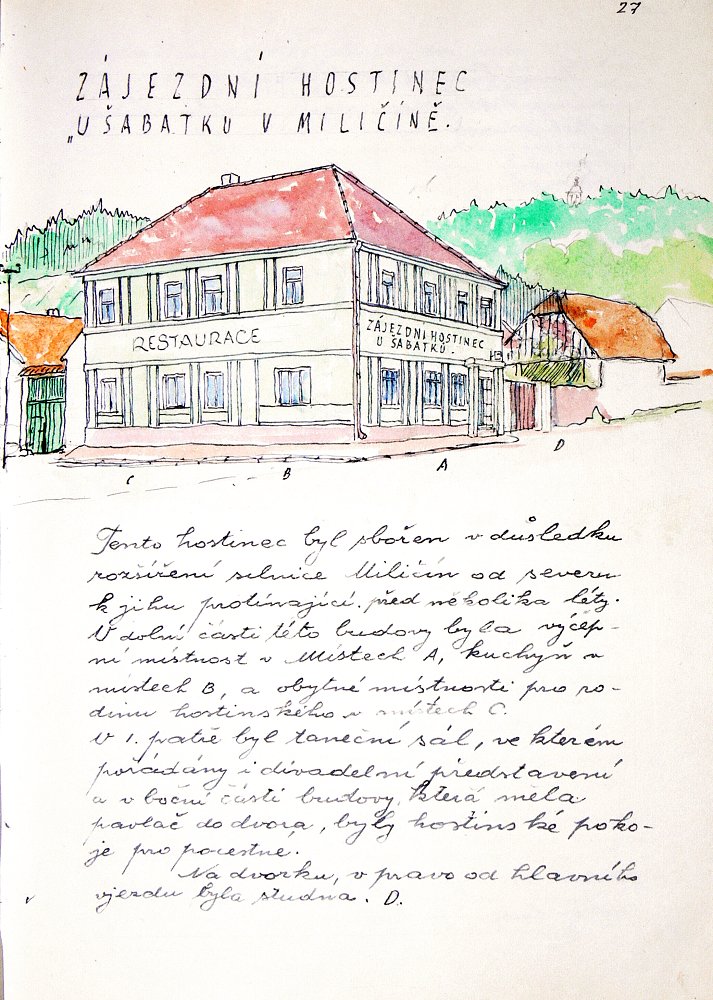 27
ZÁJEZDNÍ HOSTINEC
„U ŠABATKU V MILIČÍNĚ.
RESTAURACE
ZÁJEZDNI HOSTINEC
U ŠABATKŮ.
C
B
A
D
Tento hostinec byl sbořen v důsledku
rozšíření silnice Miličín od severu
k jihu protínající. před několika léty.
V dolní části této budovy byla výčep-
ní místnost v Místech A, kuchyň v
místech B, a obytné místnosti pro ro-
dinu hostinského v místech C.
V 1. patře byl taneční sál, ve kterém
pořádány i divadelní představení
a v boční části budovy, která měla
pavlač do dvora, byly hostinské poko-
je pro pocestné.
Na dvorku, v pravo od hlavního
vjezdu byla studna. D.